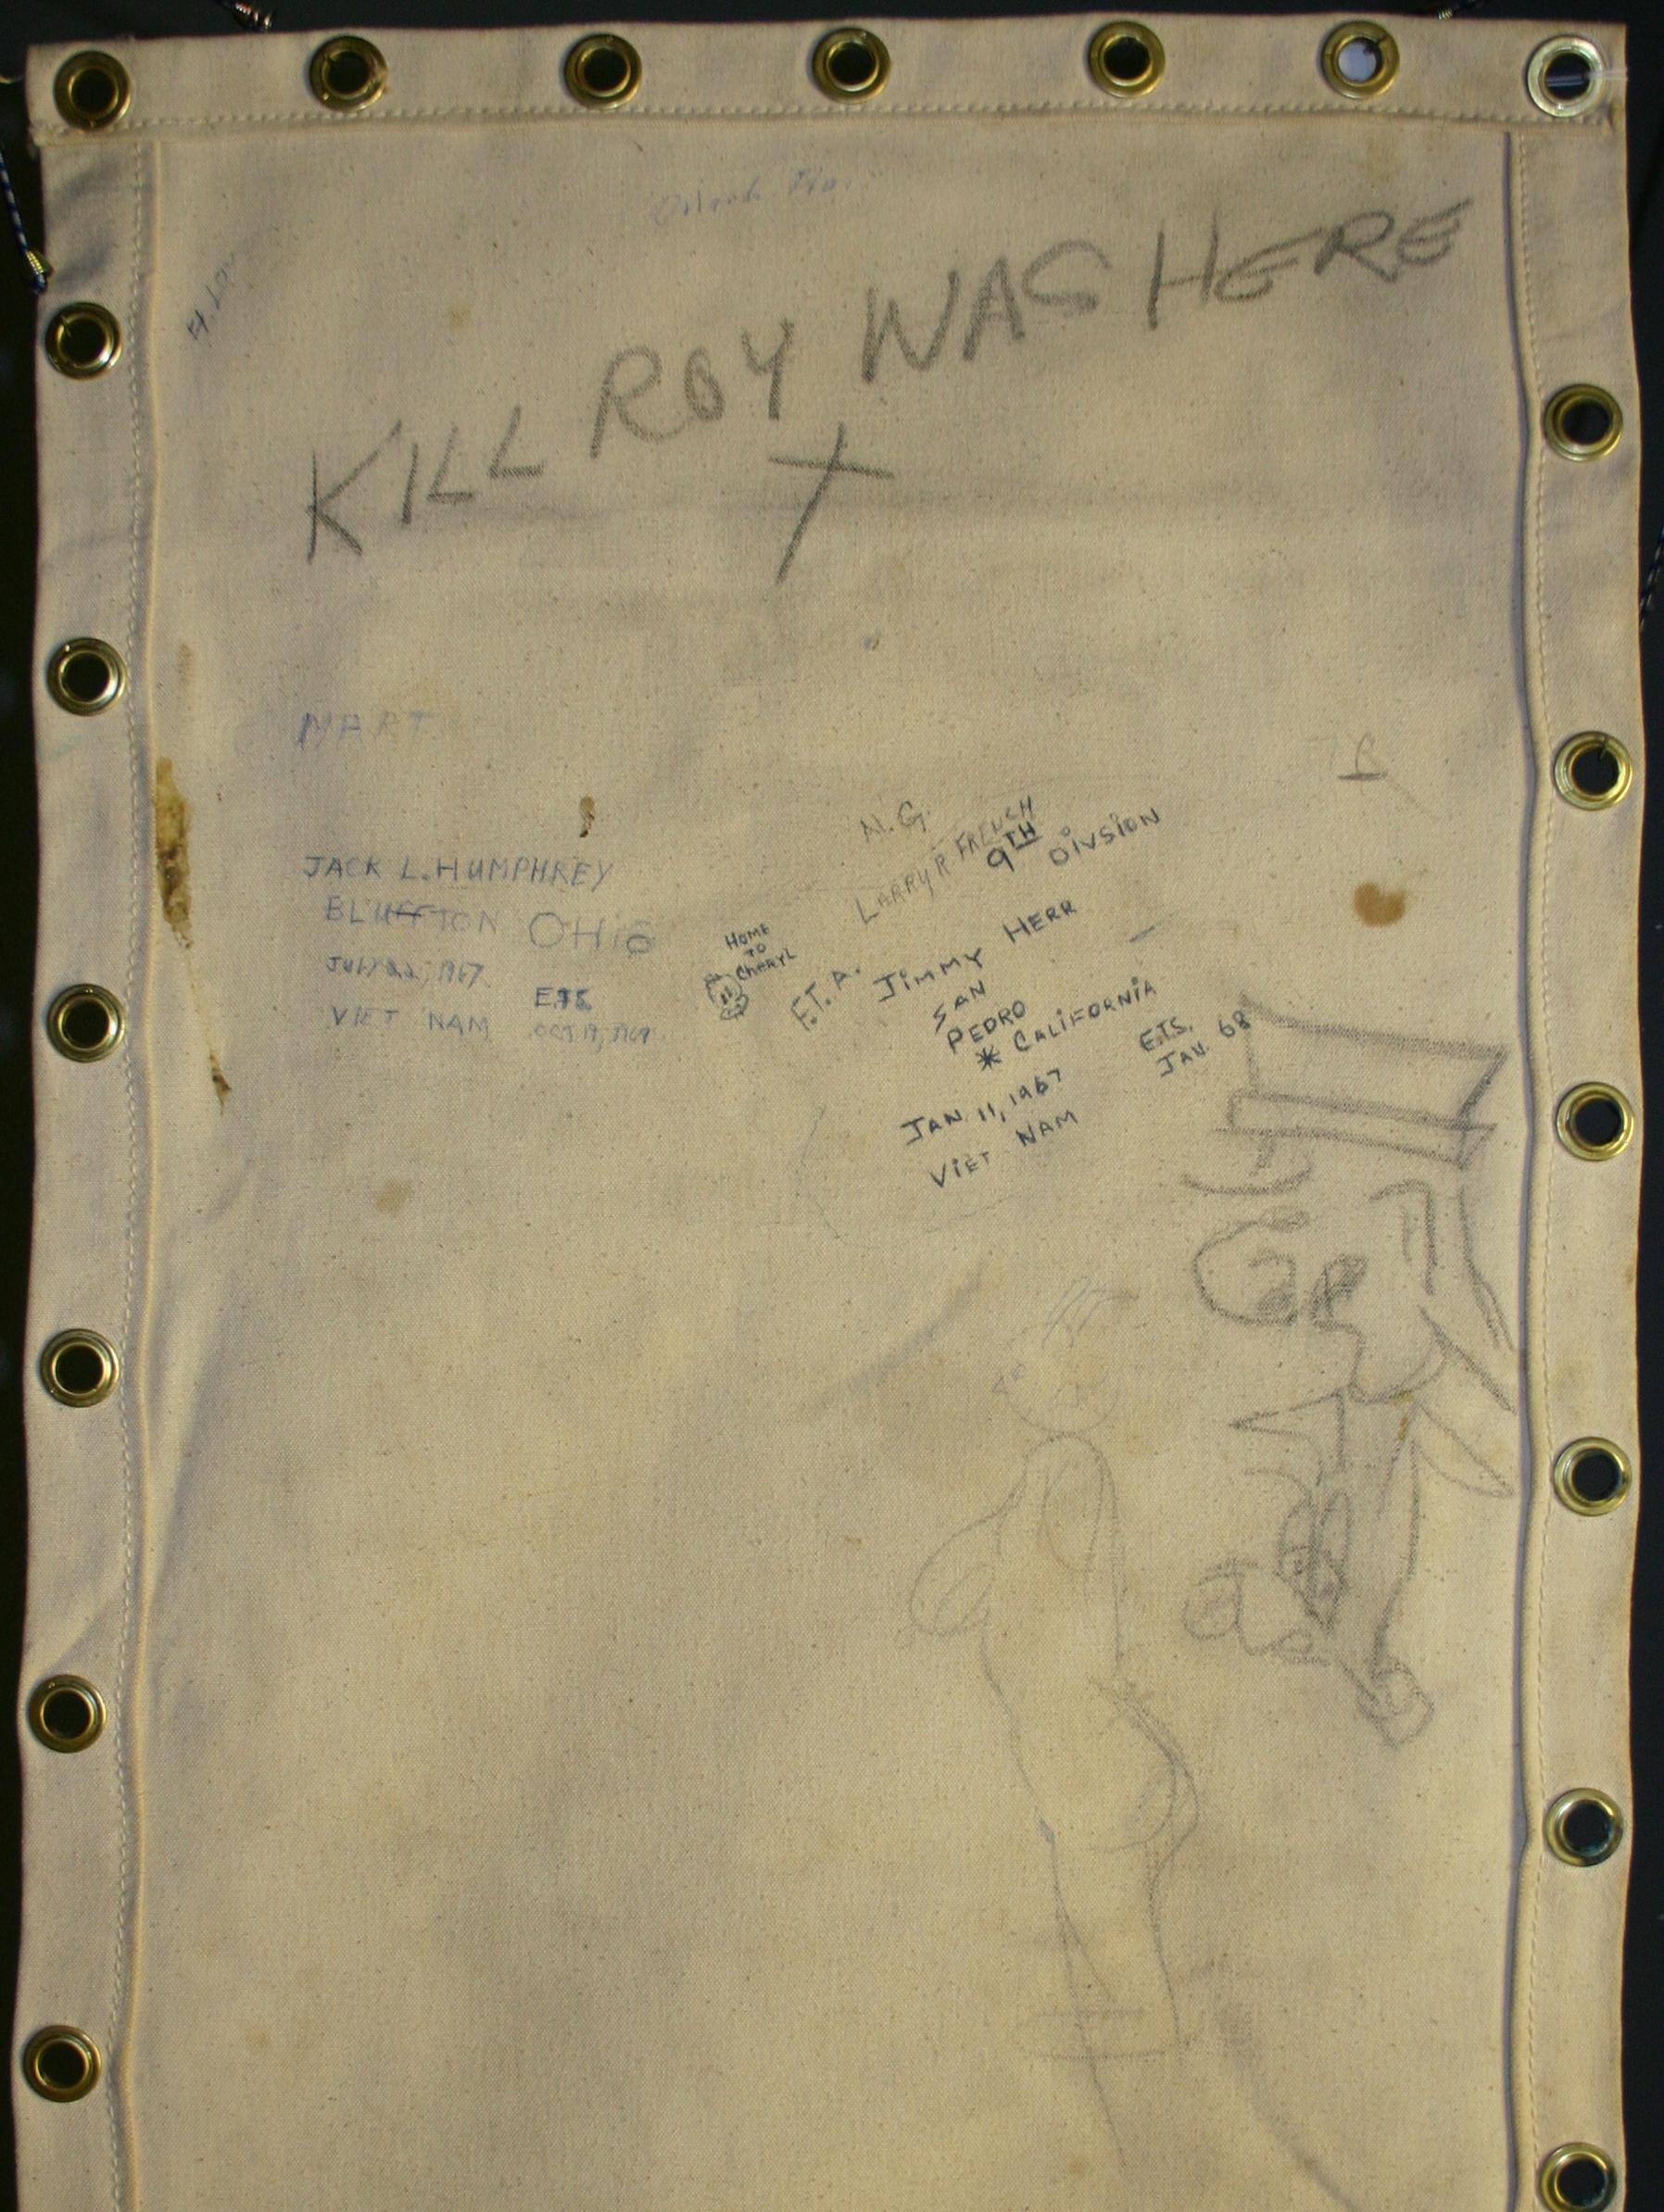 KILL ROY WAS HERE
HART
N.G.
LARRY R FRENCH
9TH DIVSION
JACK L. HUMPHREY
BLUFFTON OHiO
JULY 22, 1967
VIET NAM
E.T.S.
OCT 19, 1969
HOME
TO
CHERYL
F.T.A.
JiMMY HERR
SAN
PEDRO
* CALiFORNiA
E.T.S.
JAN. 68
JAN. 11, 1967
ViET NAM